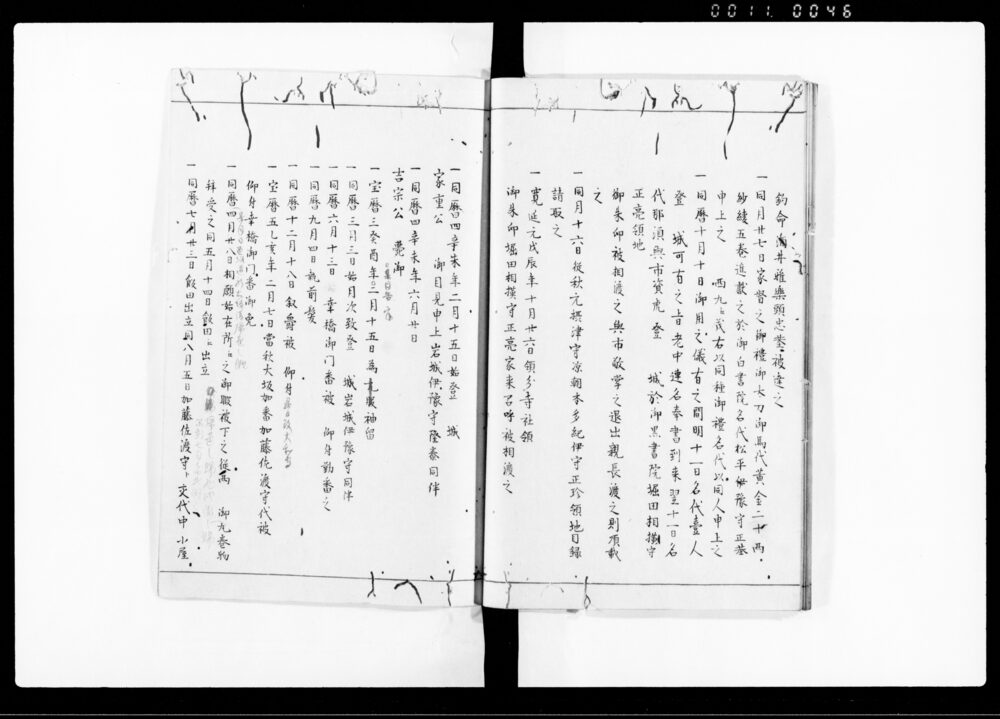 0011 0046
鈞命酒井雅樂頭忠恭被達之
一同月廿七日家督之御禮御太刀御馬代黄金二十両
紗綾五巻進献之於御白書院名代松平伊豫守正恭
申上之 右以同種御禮名代以同人申上之
一同暦十月十日御用之儀有之間明十一日名代壹人
登 城可有之上旨老中連名奉書到来翌十一日名
代那須與市資虎登 城於御黒書院堀田相摸守
正亮領地
御朱印被相渡之與市敬掌之退出親長渡之則頂戴
之
一同月十六日従秋元摂津守凉朝本多紀伊守正珍領地目録
請取之
一寛延元戊辰年十月廿六日領分寺社領
御朱印堀田相摸守正亮家来召呼被相渡之
一同暦四辛未年二月十五日始登 城
家重公 御目見申上岩城伊豫守隆泰同伴
一同暦四辛未年六月廿日
吉宗公 薨御
一宝暦三癸酉年二月十五日為 袖留
一同暦三月三日始月次致登 城岩城伊豫守同伴
一同暦六月十三日 幸橋御門番被 御身勤番之
一同暦九月四日執前髪
一同暦十二月十八日叙爵被 仰身
一宝暦五乙亥年二月七日當秋大坂加番加藤佐渡守代被
仰身幸橋御門番御免
一同暦四月廿八日相願始在所江之御暇被下之従両 御丸巻物
拝受之同五月十四日飯田江出立
一同暦七月廿三日飯田出立同八月五日加藤佐渡守ト交代中小屋